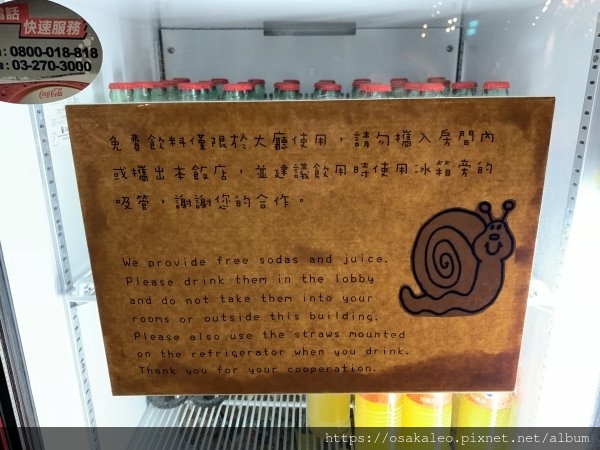 電話
快速服務
: 0800-018-818
: 03-270-3000
Coca-Cola
免費飲料僅限於大廳使用，請勿攜入房間內
或攜出本飯店，並建議飲用時使用冰箱旁的
吸管，謝謝您的合作。
We provide free sodas and juice.
Please drink them in the lobby
and do not take them into your
rooms or outside this building.
Please also use the straws mounted
on the refrigerator when you drink.
Thank you for your cooperation.
https://osakaleo.pixnet.net/album